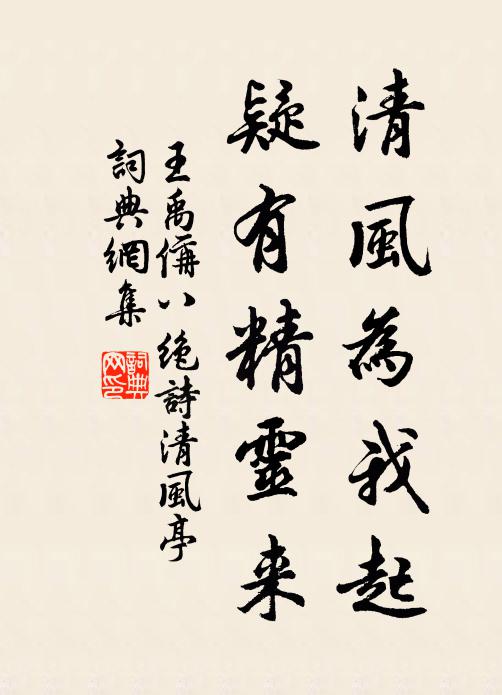 清風為我起
疑有精靈来
王禹偁八絶詩清風亭
詞典網集
詞典网印